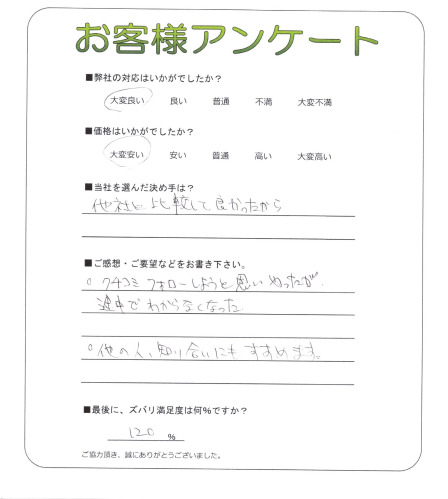 お客様アンケート
■弊社の対応はいかがでしたか？
大変良い 良い 普通 不満 大変不満
■価格はいかがでしたか？
大変安い 安い 普通 高い 大変高い
■当社を選んだ決め手は？
他社と比較して良かったから
■ご感想・ご要望などをお書き下さい。
○クチコミフォローしようと思いやったが、
途中でわからなくなった
○他の人、知り合いにもすすめます。
■最後に、ズバリ満足度は何％ですか？
120 ％
ご協力頂き、誠にありがとうございました。